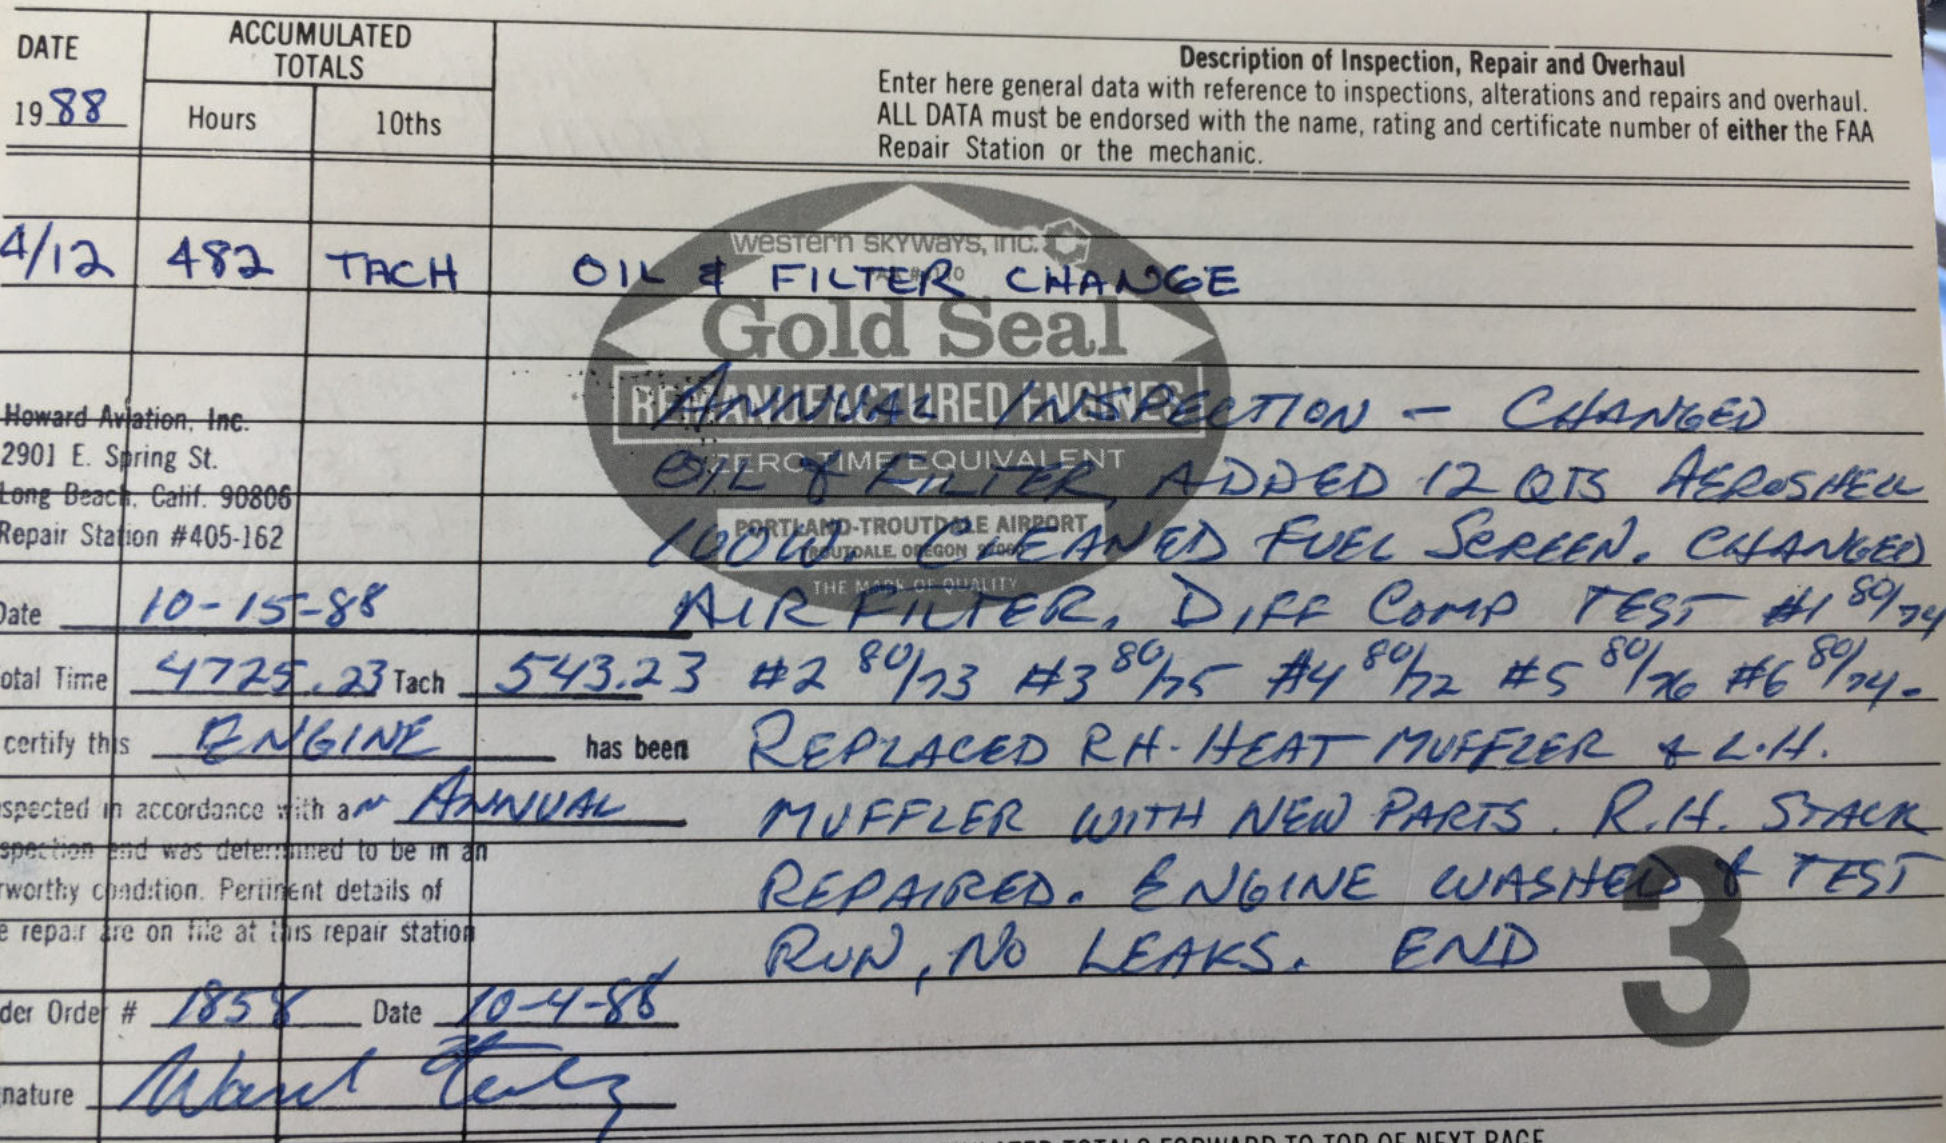 DATE
ACCUMULATED
TOTALS
Description of Inspection, Repair and Overhaul
Enter here general data with reference to inspections, alterations and repairs and overhaul.
ALL DATA must be endorsed with the name, rating and certificate number of either the FAA
Repair Station or the mechanic.
1988
Hours
10ths
western skyways, inc.
4/12 482 TACH OIL & FILTER CHANGE
Gold Seal
REMANUFACTURED ENGINES
ZERO TIME EQUIVALENT
PORTLAND-TROUTDALE AIRPORT
TROUTDALE, OREGON
THE MARK OF QUALITY
Howard Aviation, Inc.
2901 E. Spring St.
Long Beach, Calif. 90806
Repair Station #405-162
Date 10-15-88
otal Time 4725.23 Tach 543.23
certify this ENGINE has been
spected in accordance with an ANNUAL
spection and was determined to be in an
rworthy condition. Pertinent details of
e repair are on file at this repair station
der Order # 1858 Date 10-4-88
nature
ANNUAL INSPECTION - CHANGED
OIL & FILTER, ADDED 12 QTS AEROSHELL
100W. CLEANED FUEL SCREEN. CHANGED
AIR FILTER, DIFF COMP TEST #1 80/74
#2 80/73 #3 80/75 #4 80/72 #5 80/76 #6 80/74.
REPLACED RH-HEAT MUFFLER & L.H.
MUFFLER WITH NEW PARTS. R.H. STACK
REPAIRED. ENGINE WASHED & TEST
RUN, NO LEAKS. END
3
TOTALS FORWARD TO TOP OF NEXT PAGE